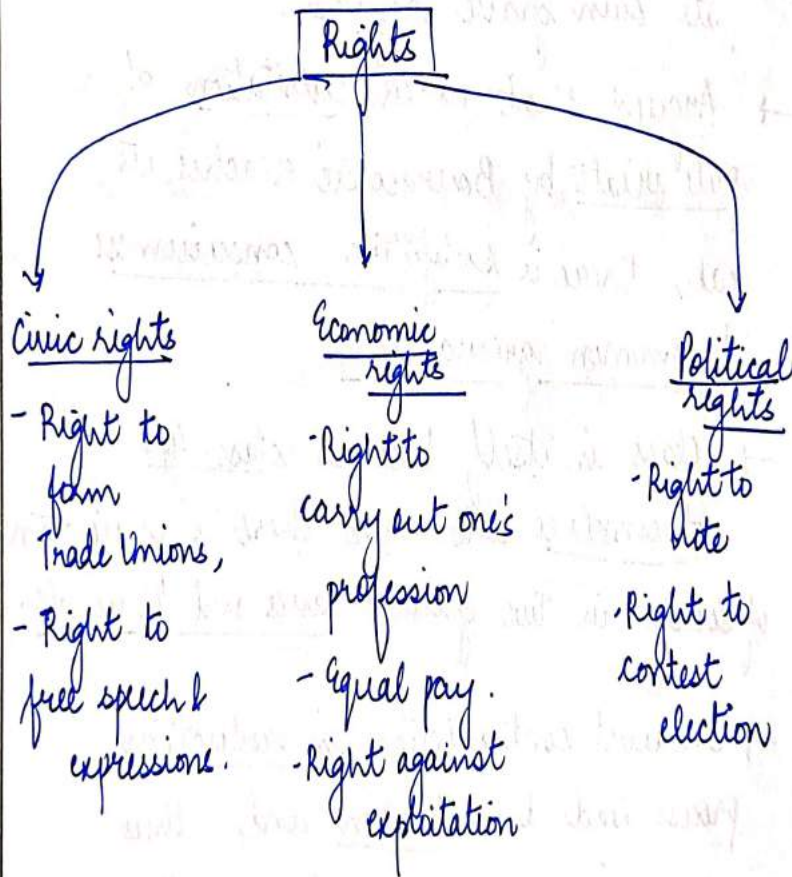 Rights
Civic rights
- Right to
form
Trade Unions,
- Right to
free speech &
expressions.
Economic
rights
- Right to
carry out one's
profession
- Equal pay.
- Right against
exploitation
Political
rights
- Right to
vote
- Right to
contest
election